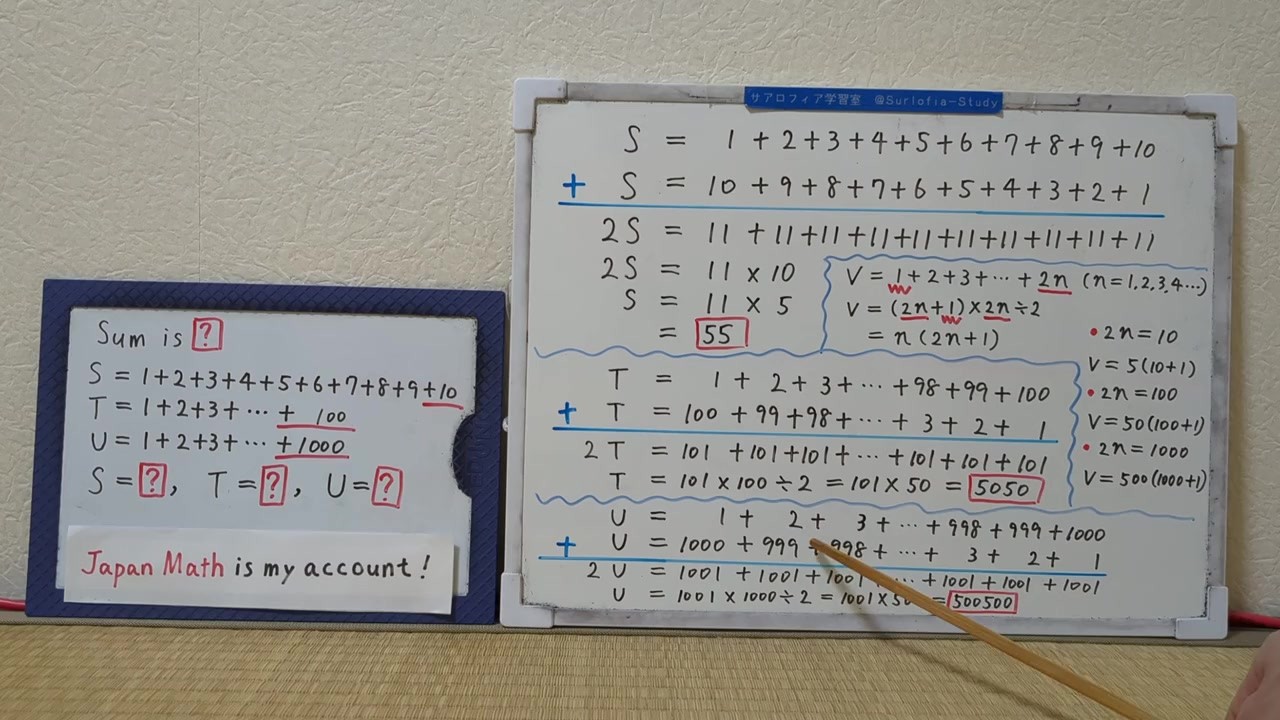 Sum is ?
S = 1+2+3+4+5+6+7+8+9+10
T = 1+2+3+ ··· + 100
U = 1+2+3+ ··· +1000
S = ?, T = ?, U = ?
Japan Math is my account!
サアロフィア学習室 @Surlofia-Study
S = 1+2+3+4+5+6+7+8+9+10
+ S = 10+9+8+7+6+5+4+3+2+1
2S = 11+11+11+11+11+11+11+11+11+11
2S = 11 × 10
S = 11 × 5
= 55
V = 1+2+3+ ··· +2n (n=1,2,3,4···)
V = (2n+1)×2n÷2
= n(2n+1)
•2n=10
V=5(10+1)
•2n=100
V=50(100+1)
•2n=1000
V=500(1000+1)
T = 1+ 2+3+ ··· +98+99+100
+ T = 100+99+98+ ··· +3+2+ 1
2T = 101+101+101+ ··· +101+101+101
T = 101×100÷2 = 101×50 = 5050
U = 1+ 2+ 3+ ··· +998+999+1000
+ U = 1000+999+998+ ··· + 3+ 2+ 1
2U = 1001+1001+1001 ·· +1001+1001+1001
U = 1001×1000÷2 = = 500500